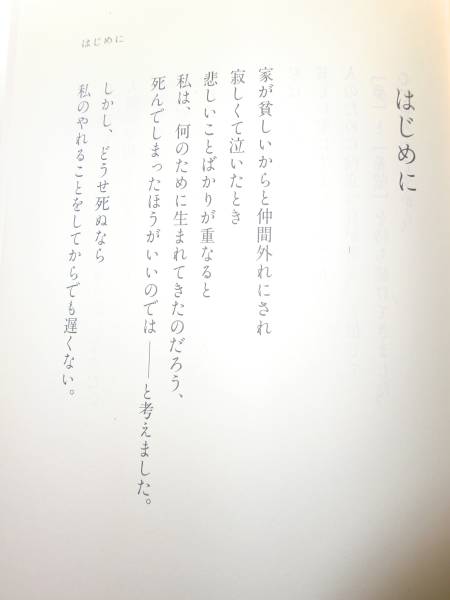 はじめに
はじめに
家が貧しいからと仲間外れにされ
寂しくて泣いたとき
悲しいことばかりが重なると
私は、何のために生まれてきたのだろう、
死んでしまったほうがいいのでは——と考えました。
しかし、どうせ死ぬなら
私のやれることをしてからでも遅くない。